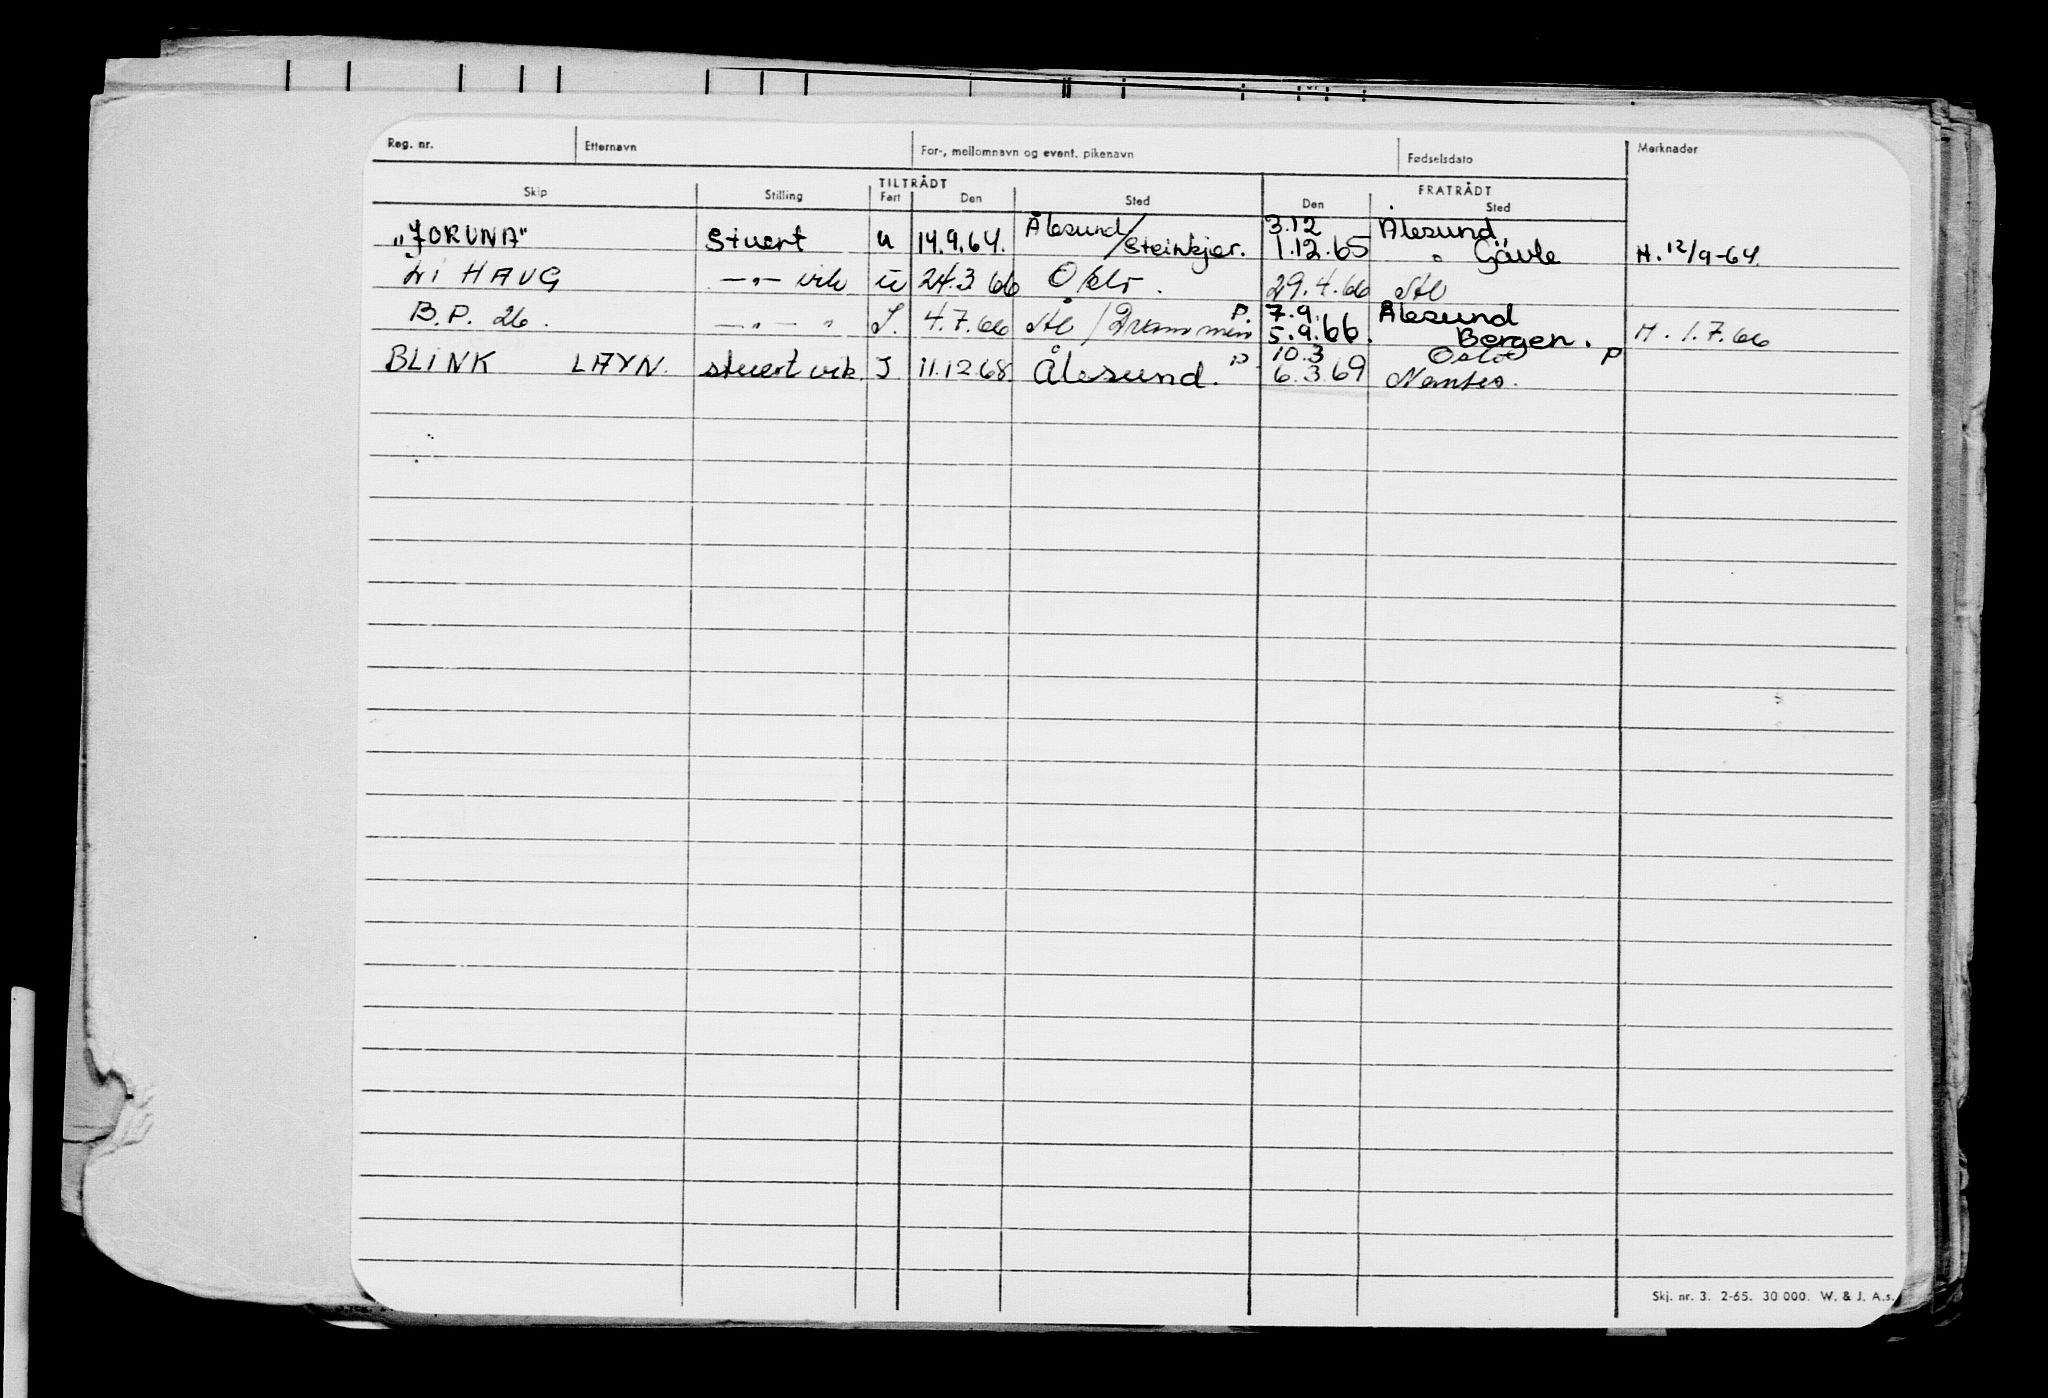 Reg. nr. Etternavn For-, mellomnavn og event. pikenavn Fødselsdato Merknader
TILTRÅDT FRATRÅDT
Skip Stilling Fart Den Sted Den Sted
"JORUNA" Stuert u 14.9.64. Ålesund/ Steinkjer. 3.12 Ålesund
1.12.65 " Gävle H. 12/9-64.
LI HAUG —"— vik u 24.3 66 Oslo. 29.4.66 Ål
B.P. 26. —"— " I. 4.7.66 Ål / Drammen P. 7.9. Ålesund
5.9.66. Bergen. H. 1.7.66
BLINK LAYN. stuert vik. I 11.12.68. Ålesund. P 10.3 Oslo P
6.3.69 Nantes.
Skj. nr. 3. 2-65. 30 000. W. & J. A.s.